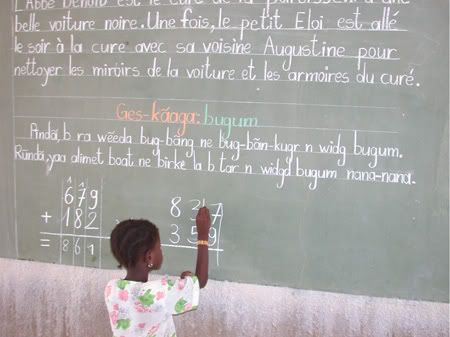 L'Abbé est le curé de la
belle voiture noire. Une fois, le petit Eloi est allé
le soir à la cure avec sa voisine Augustine pour
nettoyer les miroirs de la voiture et les armoires du curé.
Ges-kãaga: bugum
Pĩndã, b ra wẽeda bug-bãng ne bug-bõn-kugr n widg bugum.
Rũndã, yaa alimet boat ne birke la b tar n widgd bugum nana-nana.
1 1
679
+ 182
= 861
8 3 7
3 5 9